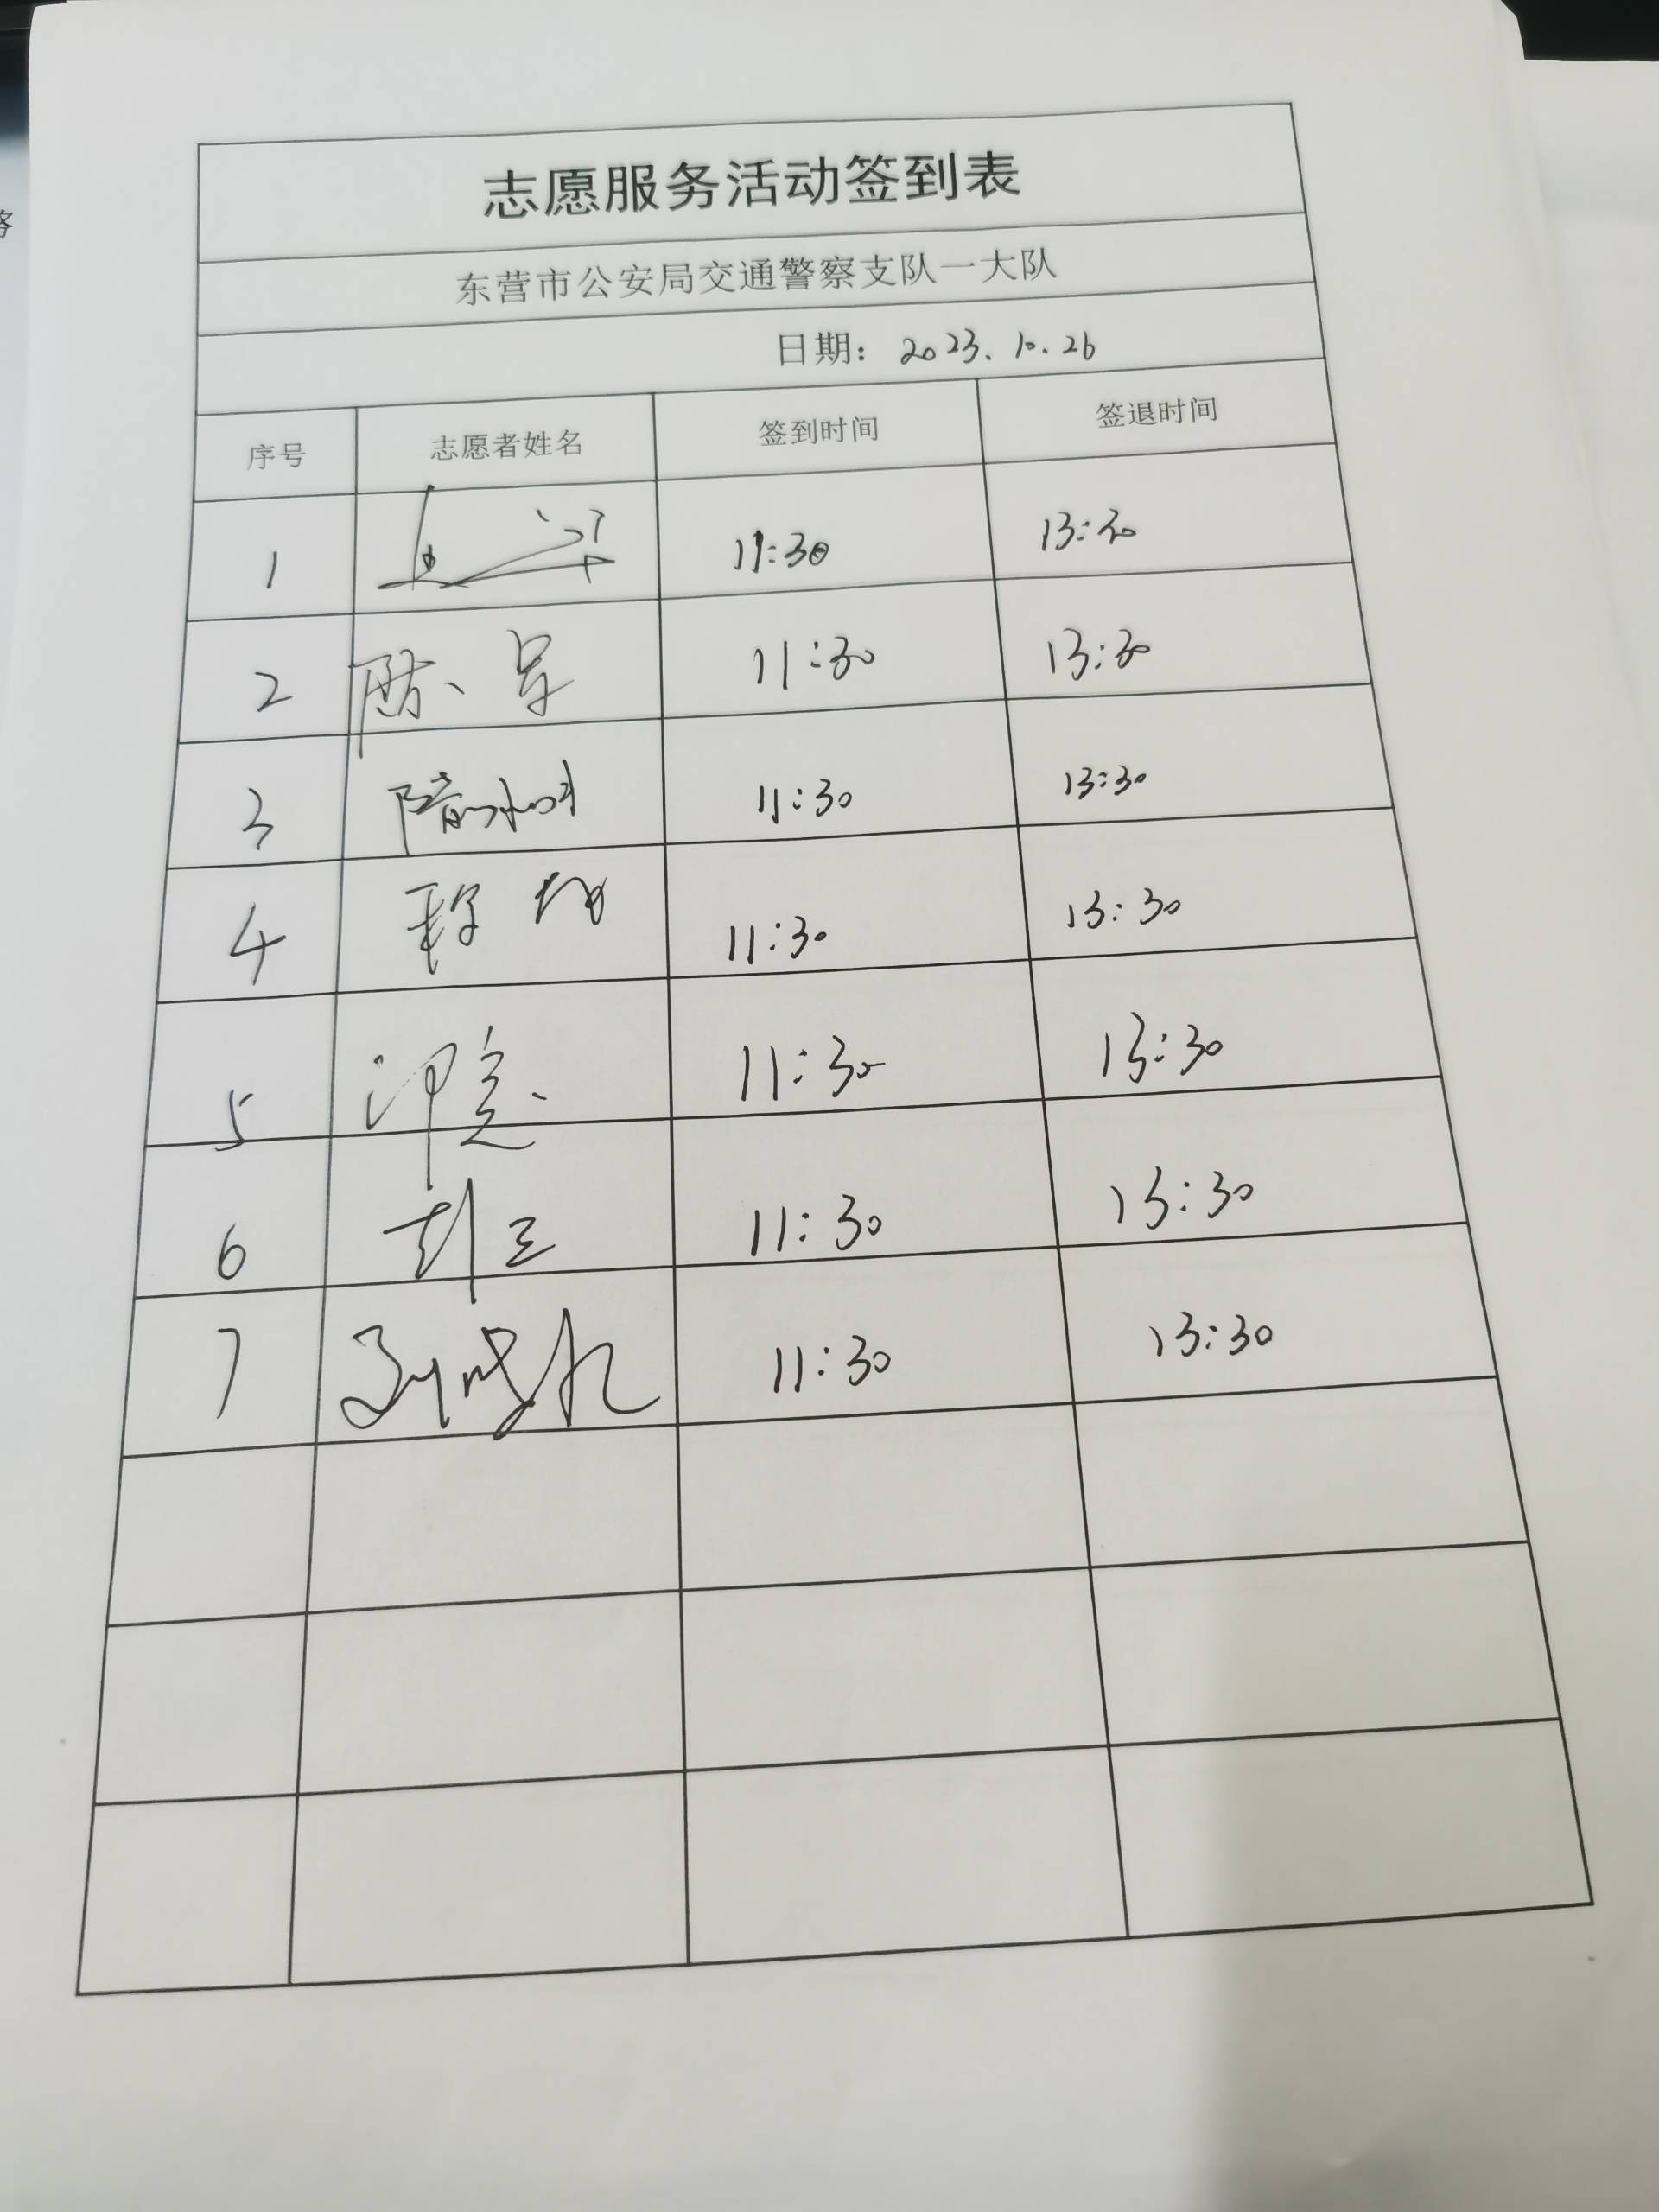 志愿服务活动签到表
东营市公安局交通警察支队一大队
日期: 2023.10.26
序号 志愿者姓名 签到时间 签退时间
1 11:30 13:30
2 陈军 11:30 13:30
3 11:30 13:30
4 11:30 13:30
5 11:30 13:30
6 11:30 13:30
7 11:30 13:30